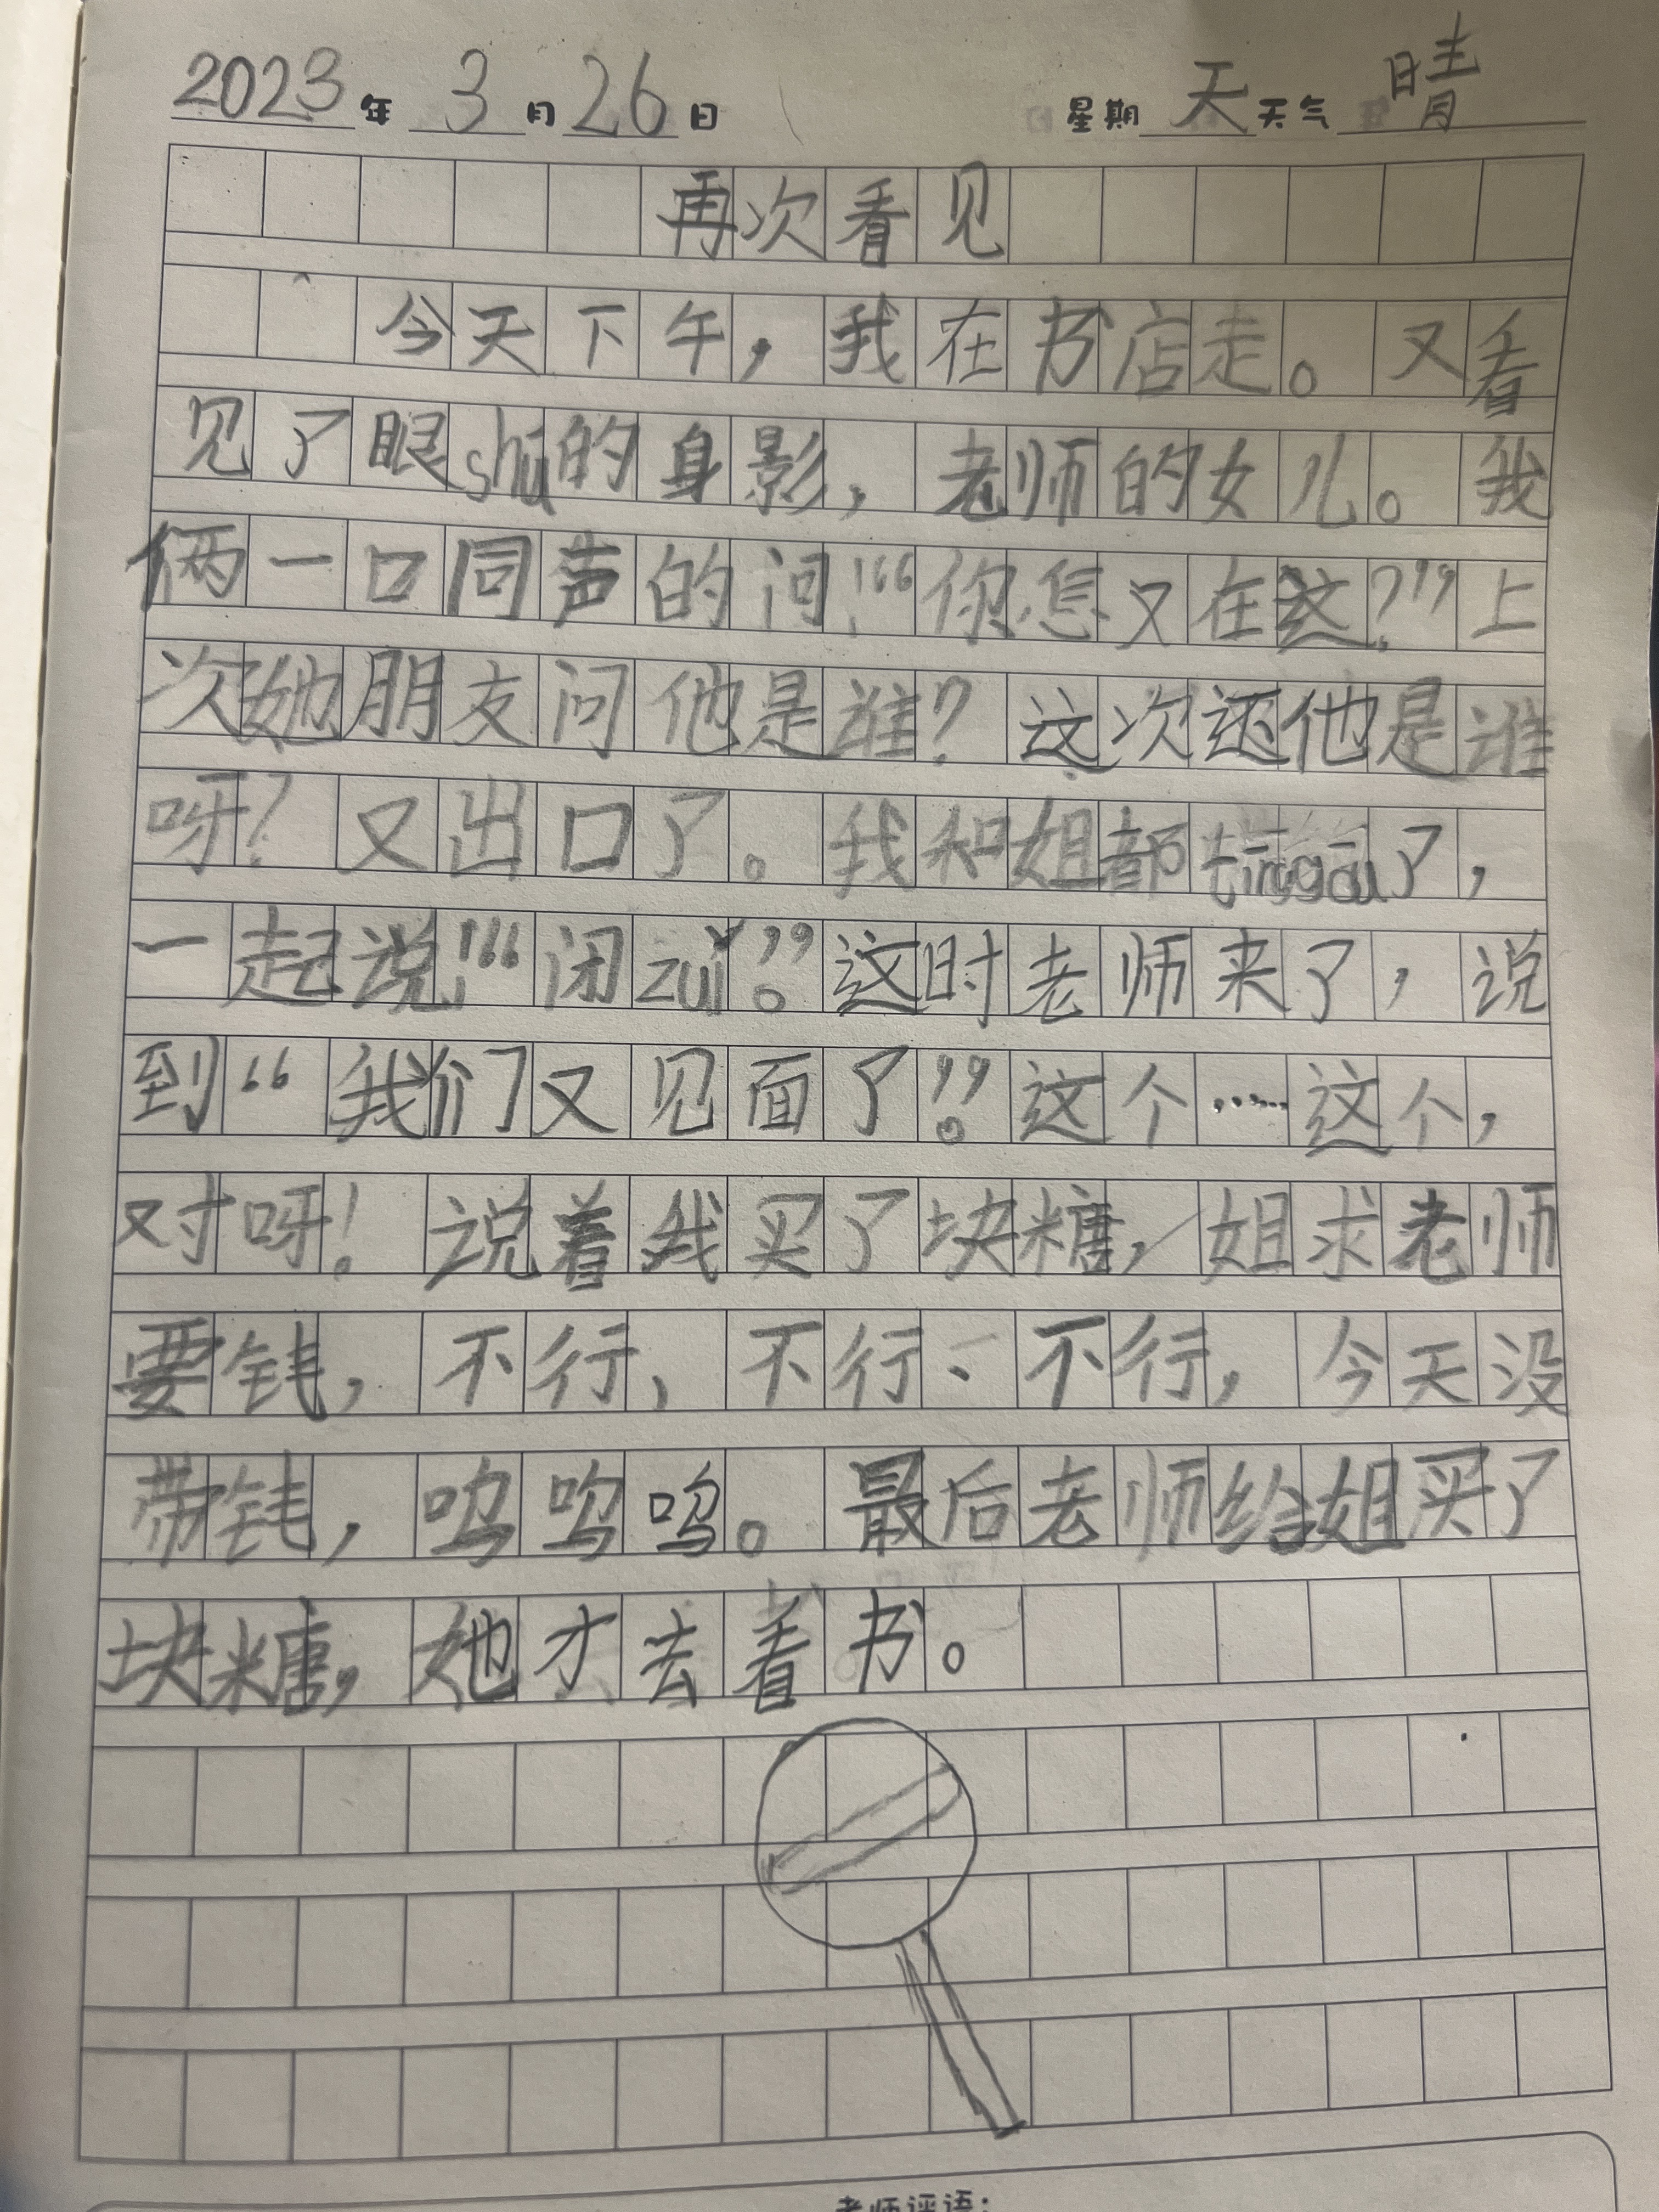 2023年 3月26日 星期天天气晴
再次看见
今天下午，我在书店走。又看
见了眼shú的身影，老师的女儿。我
俩一口同声的问!“你怎又在这?”上
次她朋友问他是谁？这次还他是谁
呀？又出口了。我和姐都tīnggòu了，
一起说!“闭zuǐ”。这时老师来了，说
到“我们又见面了”。这个……这个，
对呀！说着我买了块糖，姐求老师
要钱，不行、不行、不行，今天没
带钱，呜呜呜。最后老师给姐买了
块糖，她才去看书。
老师评语：